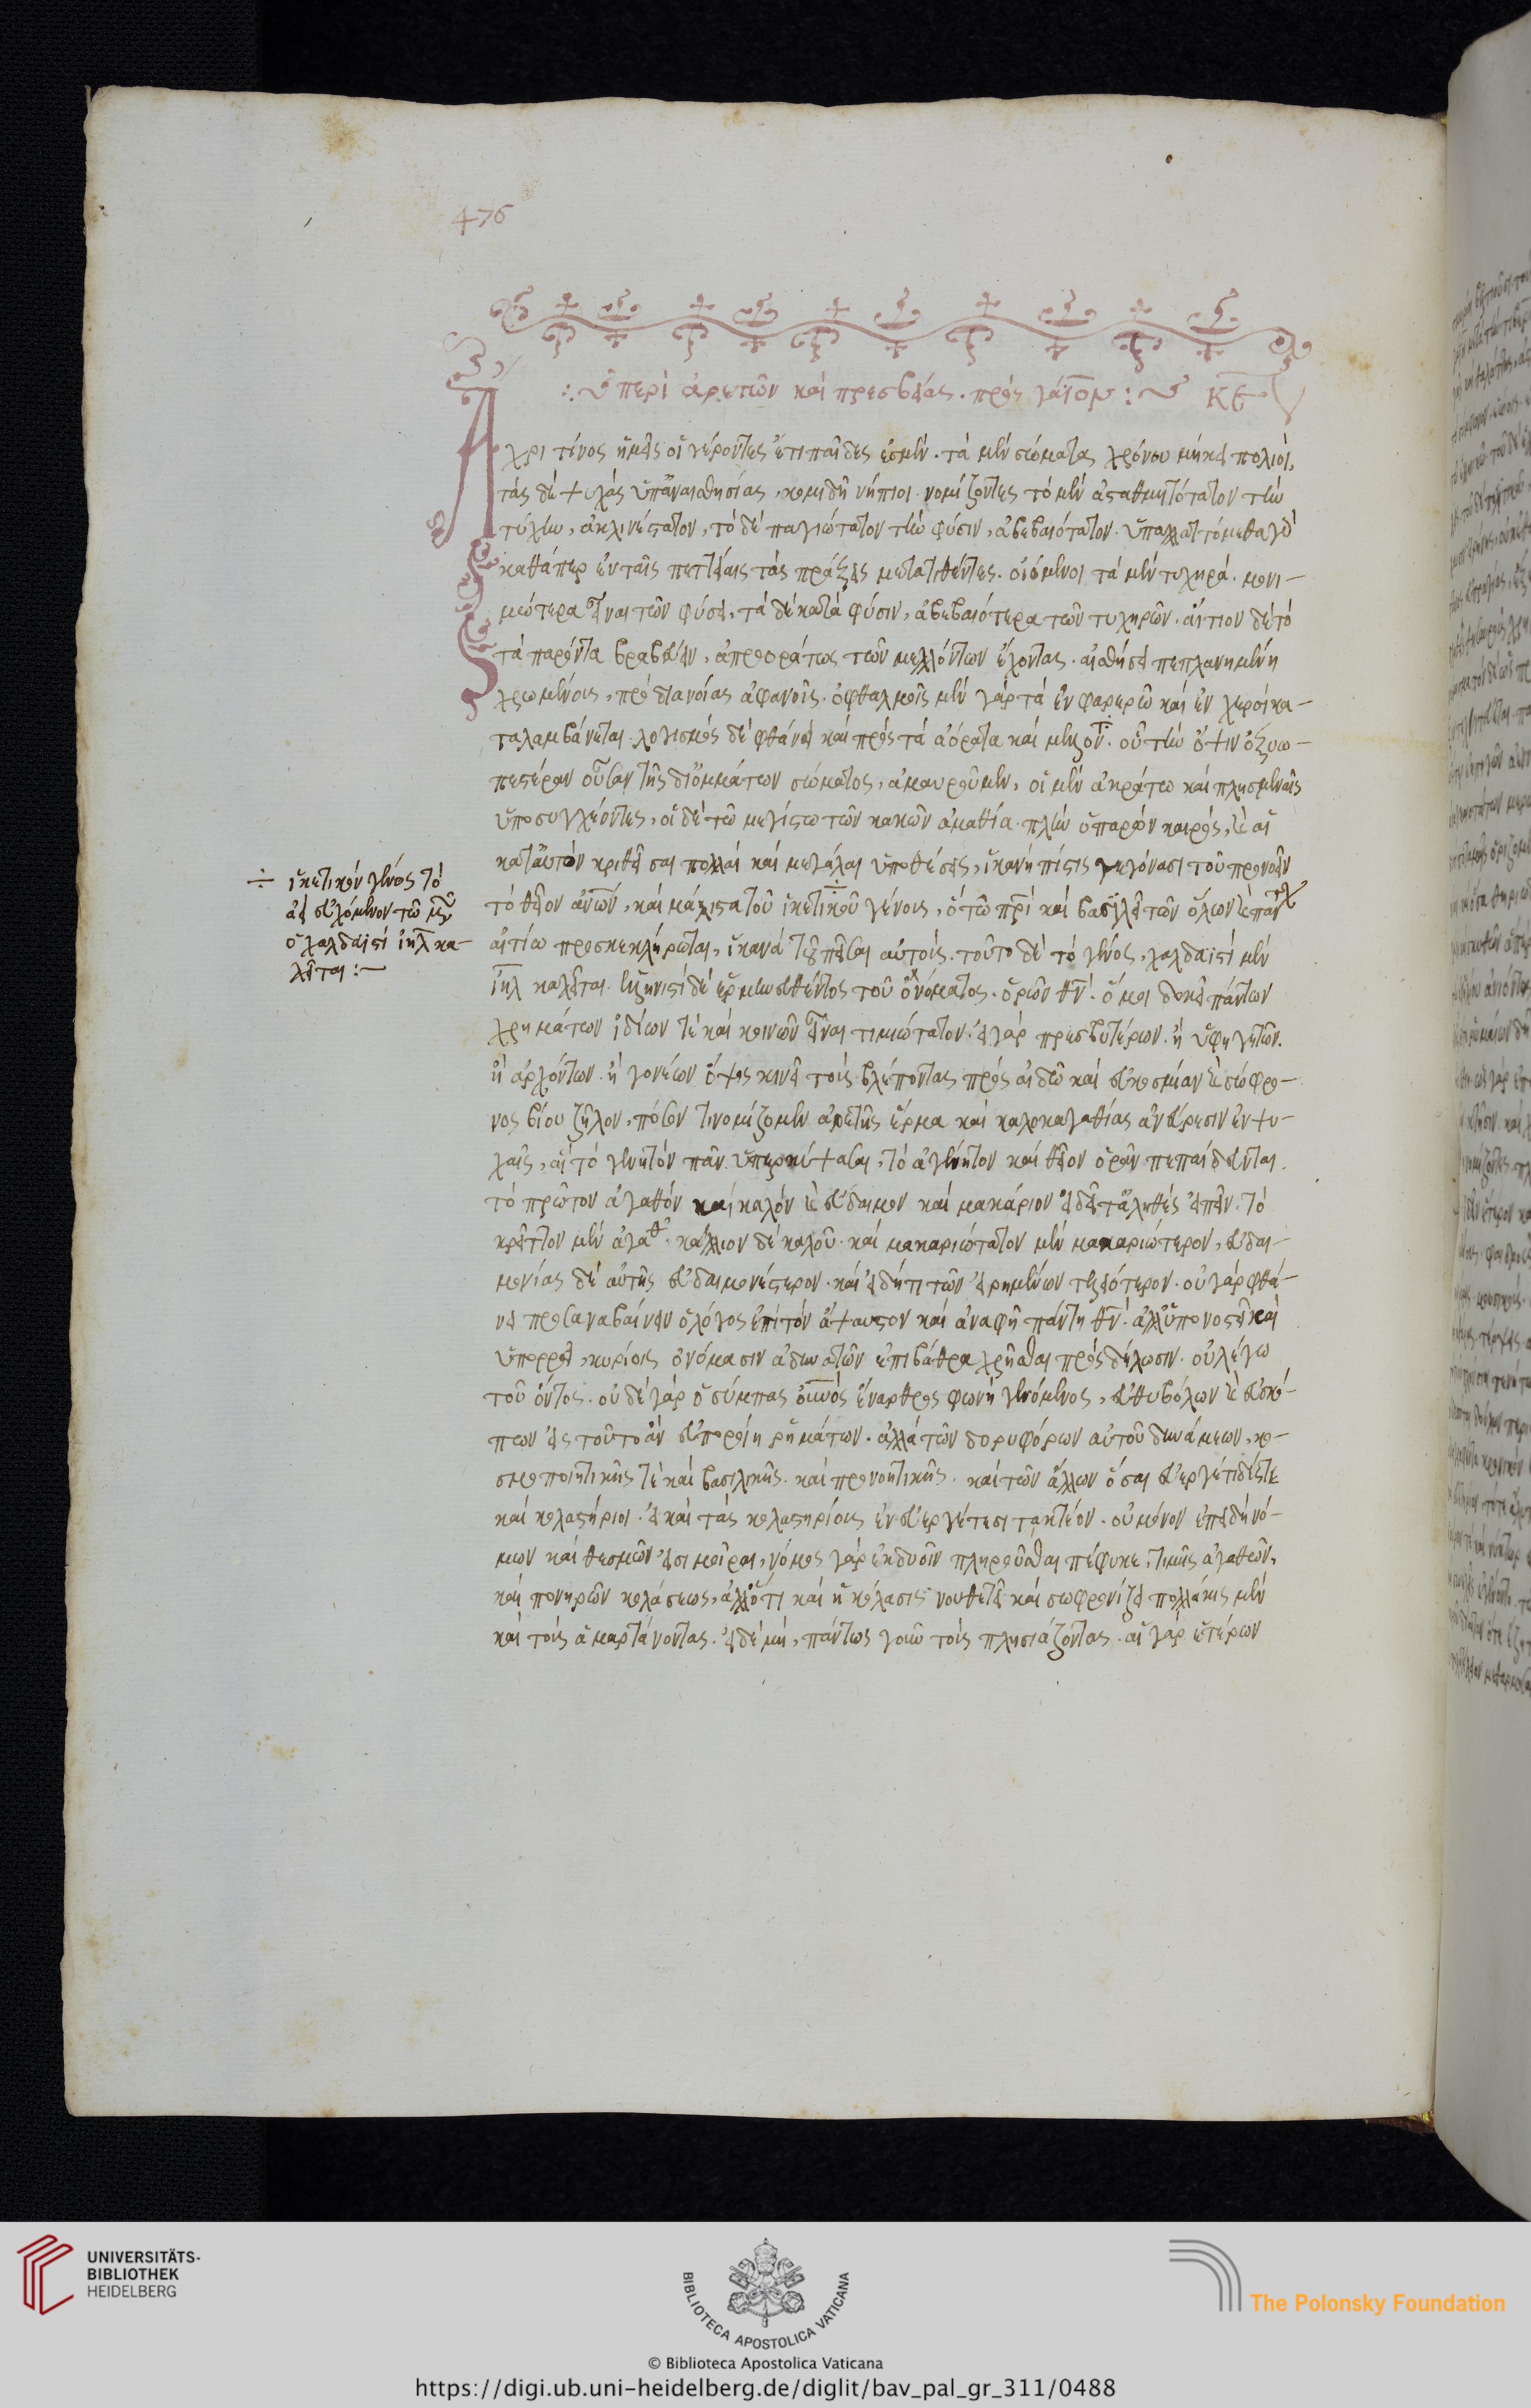 476
περὶ ἀρετῶν καὶ πρεσβείας. πρὸς γάϊον : κε
Ἄχρι τίνος ἡμεῖς οἱ γέροντες ἔτι παῖδες ἐσμέν. τὰ μὲν σώματα χρόνου μήκει πολιοὶ,
τὰς δὲ ψυχὰς ὑπ' ἀναισθησίας, κομιδῆ νήπιοι. νομίζοντες τὸ μὲν ἀσταθμητότατον τὴν
τύχην, ἀκλινέστατον, τὸ δὲ παγιώτατον τὴν φύσιν, ἀβεβαιότατον. ὑπαλλαττόμεθα γὰρ
καθάπερ ἐν ταῖς πεττείαις τὰς πράξεις μετατιθέντες. οἰόμενοι τὰ μὲν τυχηρὰ. μονι-
μώτερα εἶναι τῶν φύσει, τὰ δὲ κατὰ φύσιν, ἀβεβαιότερα τῶν τυχηρῶν. αἴτιον δὲ τὸ
τὰ παρόντα βραβεύειν, ἀπροοράτως τῶν μελλόντων ἔχοντας. αἰσθήσει πεπλανημένη
χρωμένοις, πρὸ διανοίας ἀφανοῖς. ὀφθαλμοῖς μὲν γὰρ τὰ ἐν φανερῶ καὶ ἐν χερσὶ κα-
ταλαμβάνεται. λογισμὸς δὲ φθάνει καὶ πρὸς τὰ ἀόρατα καὶ μέλλοντ. οὗ τὴν ὄψιν ὀξυω-
πεστέραν οὖσαν τῆς δι' ὀμμάτων σώματος, ἀμαυροῦμεν, οἱ μὲν ἀκράτω καὶ πλησμοναῖς
ὑποσυγχέοντες, οἱ δὲ τῶ μεγίστω τῶν κακῶν ἀμαθία. πλὴν ὁ παρὼν καιρὸς, καὶ αἱ
κατ' αὐτὸν κριθεῖσαι πολλαὶ καὶ μεγάλαι ὑποθέσεις, ἱκανὴ πίστις γεγόνασι τοῦ προνοεῖν
τὸ θεῖον ἀνων, καὶ μάλιστα τοῦ ἱκετικοῦ γένους, ὃ τῶ πρι καὶ βασιλεῖ τῶν ὅλων καὶ πάντων
αἰτίω προσκεκλήρωται, ἱκανὰ τοῦ πεῖσαι αὐτούς. τοῦτο δὲ τὸ γένος, χαλδαϊστὶ μὲν
ιηλ καλεῖται. ἑλληνιστὶ δὲ ἑρμηνευθέντος τοῦ ὀνόματος. ὁρῶν θν. ὅ μοι δοκεῖ πάντων
χρημάτων ἰδίων τὲ καὶ κοινῶν εἶναι τιμιώτατον. εἰ γὰρ πρεσβυτέρων. ἢ ὑφηγητῶν.
ἢ ἀρχόντων. ἢ γονέων ὄψις κινεῖ τοὺς βλέποντας πρὸς αἰδῶ καὶ εὐκοσμίαν καὶ σώφρο-
νος βίου ζῆλον, πόσον τι νομίζομεν ἀρετῆς ἕρμα καὶ καλοκαγαθίας ἀνεύρεσιν ἐν ψυ-
χαῖς, αἳ τὸ γενητὸν πᾶν ὑπερκύψασαι, τὸ ἀγένητον καὶ θεῖον ὁρᾶν πεπαίδευνται.
τὸ πρῶτον ἀγαθὸν καὶ καλὸν καὶ εὔδαιμον καὶ μακάριον εἰ δεῖ τἀληθὲς εἰπεῖν. τὸ
κρεῖττον μὲν ἀγαθ. κάλλιον δὲ καλοῦ. καὶ μακαριώτατον μὲν μακαριώτερον, εὐδαι-
μονίας δὲ αὐτῆς εὐδαιμονέστερον. καὶ εἰ δή τι τῶν εἰρημένων τελεώτερον. οὐ γὰρ φθά-
νει προσαναβαίνειν ὁ λόγος ἐπὶ τὸν ἄψαυστον καὶ ἀναφῆ πάντη θν. ἀλλ' ὑπονοστεῖ καὶ
ὑπορρεῖ, κυρίοις ὀνόμασιν ἀδυνατῶν ἐπιβάθρα χρῆσθαι πρὸς δήλωσιν. οὐ λέγω
τοῦ ὄντος. οὐδὲ γὰρ ὁ σύμπας οὐνος ἔναρθρος φωνὴ γενόμενος, εὐθυβόλων καὶ εὐσκό-
πων εἰς τοῦτο ἂν εὐποροίη ῥημάτων. ἀλλὰ τῶν δορυφόρων αὐτοῦ δυνάμεων, κο-
σμοποιητικῆς τὲ καὶ βασιλικῆς. καὶ προνοητικῆς. καὶ τῶν ἄλλων ὅσαι εὐεργέτιδές τε
καὶ κολαστήριοι. εἰ καὶ τὰς κολαστηρίους ἐν εὐεργέτεσι τακτέον. οὐ μόνον ἐπειδὴ νό-
μων καὶ θεσμῶν εἰσι μοῖραι, νόμος γὰρ ἐκ δυοῖν πληροῦσθαι πέφυκε, τιμῆς ἀγαθῶν,
καὶ πονηρῶν κολάσεως, ἀλλ' ὅτι καὶ ἡ κόλασις νουθετεῖ καὶ σωφρονίζει πολλάκις μὲν
καὶ τοὺς ἁμαρτάνοντας. εἰ δὲ μὴ, πάντως γοῦν τοὺς πλησιάζοντας. αἱ γὰρ ἑτέρων
÷ ἱκετικὸν γένος τὸ
ὃ χαλδαϊστὶ ιηλ κα-
λεῖται :-
UNIVERSITÄTS-
BIBLIOTHEK
HEIDELBERG
BIBLIOTECA APOSTOLICA VATICANA
The Polonsky Foundation
© Biblioteca Apostolica Vaticana
https://digi.ub.uni-heidelberg.de/diglit/bav_pal_gr_311/0488